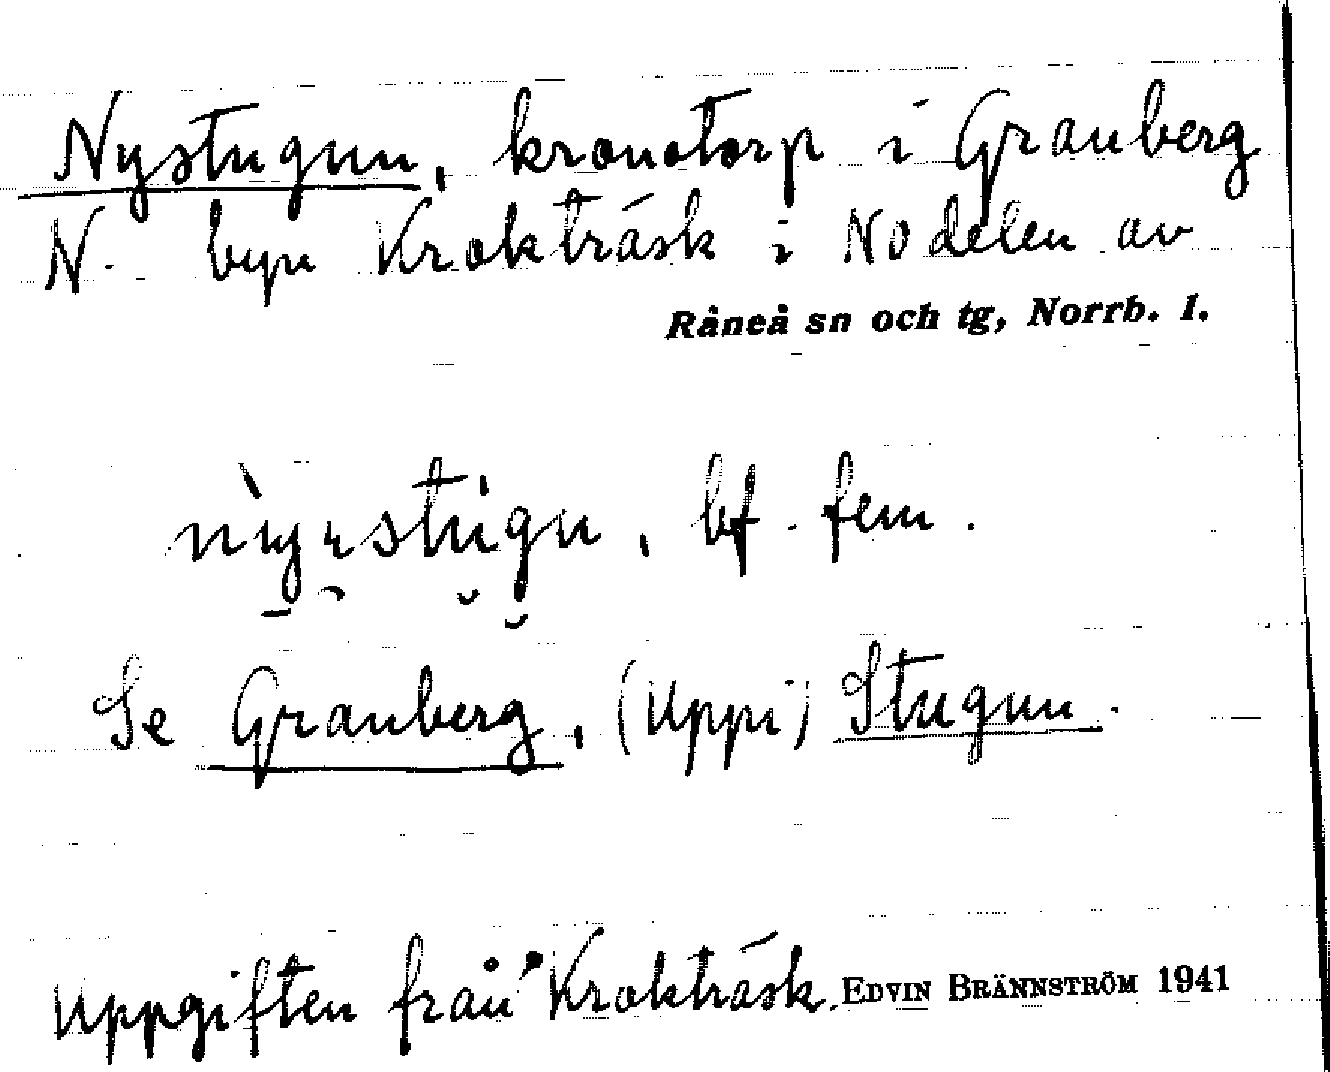 Nystugun, kronotorp i Granberg
N. byn Krokträsk i NO delen av
Råneå sn och tg, Norrb. l.
bf. fem.
Se Granberg, (Uppi) Stugun.
Uppgiften från Krokträsk. EDVIN BRÄNNSTRÖM 1941